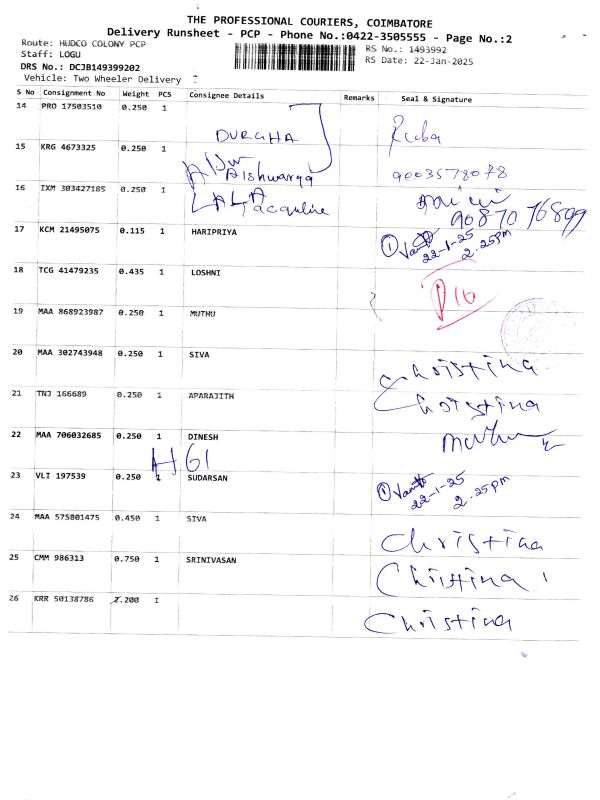 THE PROFESSIONAL COURIERS, COIMBATORE
Delivery Runsheet - PCP - Phone No.:0422-3505555 - Page No.:2
Route: HUDCO COLONY PCP
RS No.: 1493992
Staff: LOGU
RS Date: 22-Jan-2025
DRS No.: DCJB149399202
Vehicle: Two Wheeler Delivery
S No Consignment No Weight PCS Consignee Details Remarks Seal & Signature
14 PRO 17503510 0.250 1
DURGHA
15 KRG 4673325 0.250 1
Aishwarya
9003578078
16 IXM 303427185 0.250 1
LALA
Jacquline
90870 76899
17 KCM 21495075 0.115 1 HARIPRIYA
22-1-25
2.25pm
18 TCG 41479235 0.435 1 LOSHNI
19 MAA 868923987 0.250 1 MUTHU
20 MAA 302743948 0.250 1 SIVA
Christina
21 TNJ 166689 0.250 1 APARAJITH
Christina
22 MAA 706032685 0.250 1 DINESH
23 VLI 197539 0.250 1 SUDARSAN
22-1-25
2.25pm
24 MAA 575801475 0.450 1 SIVA
Christina
25 CMM 986313 0.750 1 SRINIVASAN
Christina
26 KRR 50138786 2.200 1
Christina